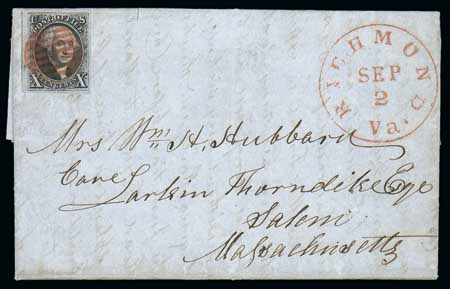 POST OFFICE
X X
RICHMOND
SEP
2
Va.
Mrs Wm H. Hubbard
Care Larkin Thorndike Esqe
Salem
Massachusetts